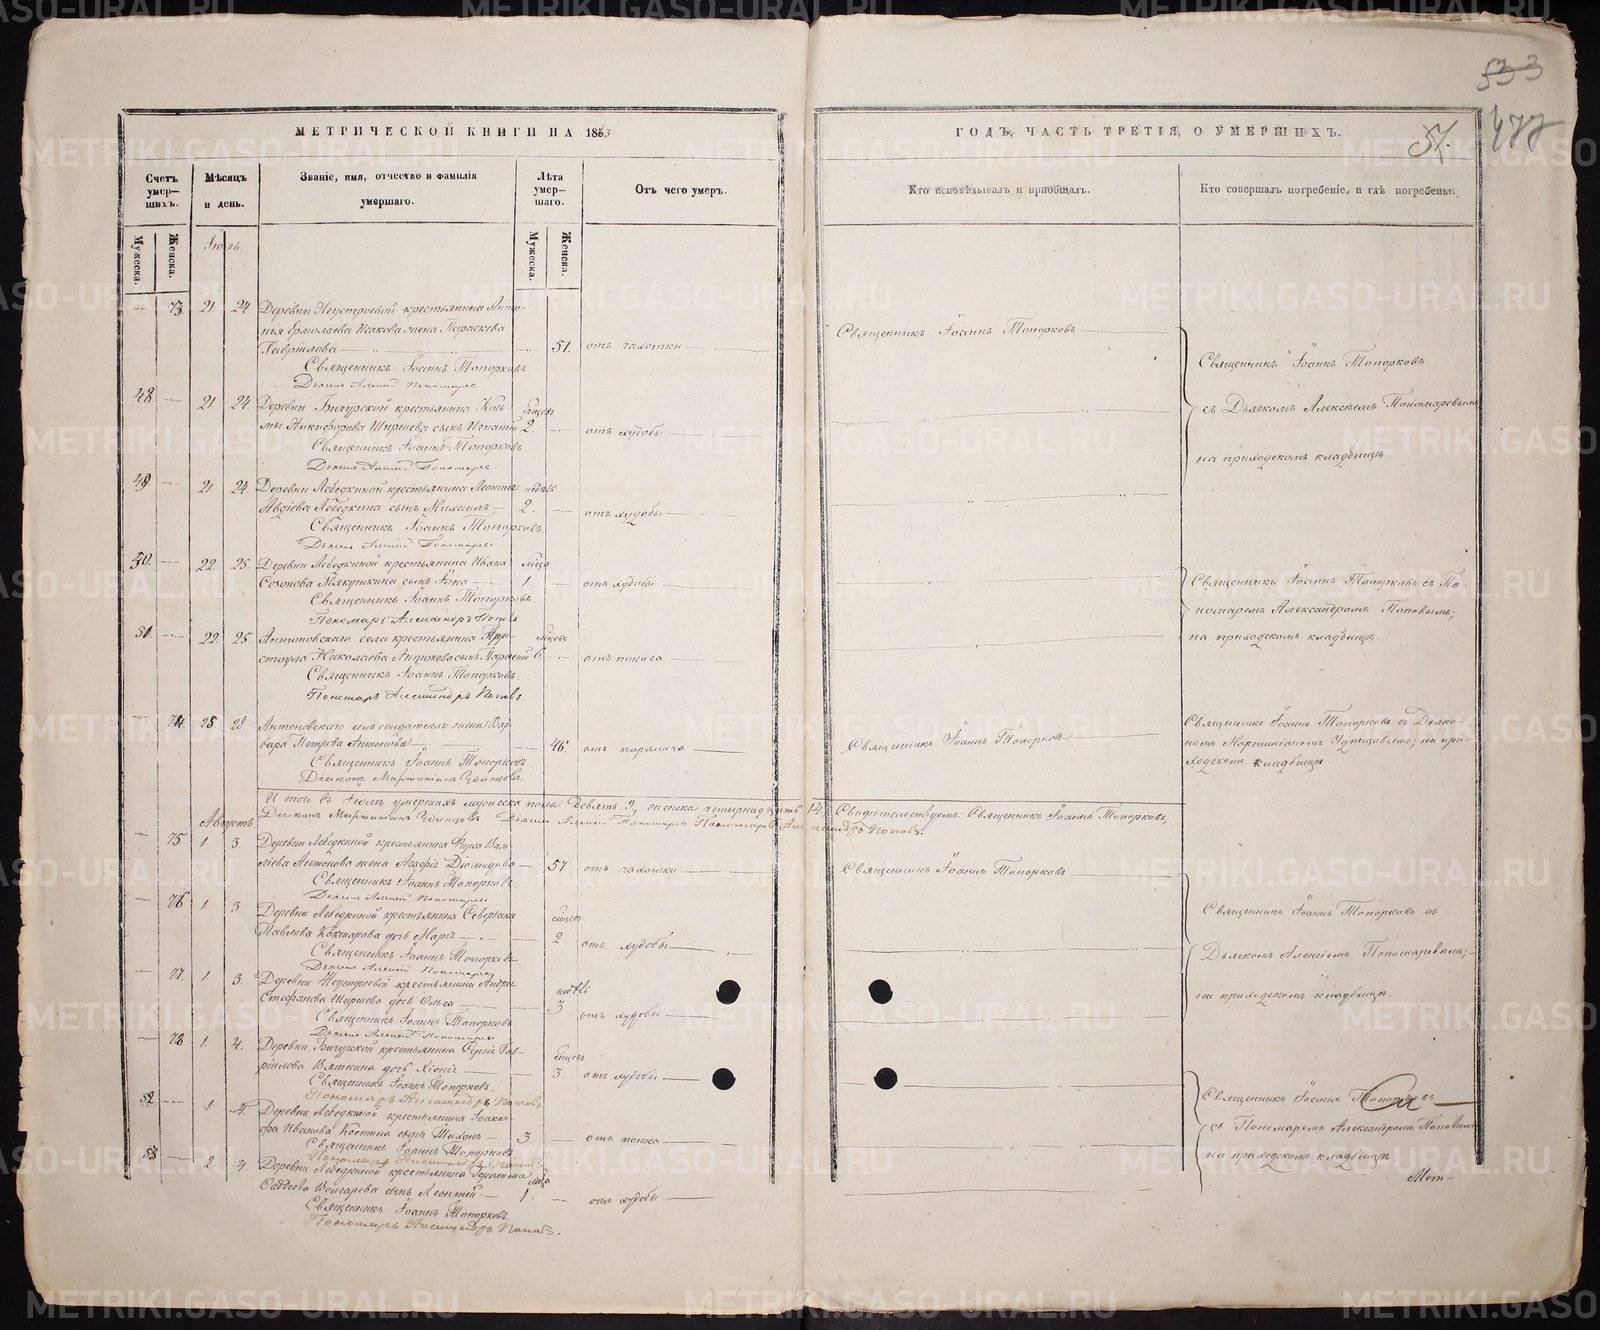 533
477
57.
МЕТРИЧЕСКОЙ КНИГИ НА 1863
ГОДЪ, ЧАСТЬ ТРЕТІЯ, О УМЕРШИХЪ.
Счетъ умер-шихъ.
Мѣсяцъ и день.
Званіе, имя, отчество и фамилія умершаго.
Лѣта умер-шаго.
Отъ чего умеръ.
Кто исповѣдывалъ и пріобщалъ.
Кто совершалъ погребеніе, и гдѣ погребены.
Мужеска.
Женска.
Мужеска.
Женска.
Іюль.
73. 21 24 Деревни Неустроевой крестьянина
Ермолаева Исакова жена Параскева
Гавріилова 51. отъ чахотки
Священникъ Іоаннъ Топорковъ
Священникъ Іоаннъ Топорковъ
Дьячекъ Алексѣй Пономаревъ
48 21 24 Деревни Бичурской крестьянина Козь-
мы Никифорова Ширшева сынъ Игнатій 2. отъ худобы
Священникъ Іоаннъ Топорковъ
Дьячекъ Алексѣй Пономаревъ
Священникъ Іоаннъ Топорковъ
съ Дьячкомъ Алексѣемъ Пономаревымъ
на приходскомъ кладбищѣ.
49 21 24. Деревни Лебедкиной крестьянина Леонтія недѣль
Авдіева Лебедкина сынъ Михаилъ 2. отъ худобы
Священникъ Іоаннъ Топорковъ
Дьячекъ Алексѣй Пономаревъ
50. 22 25. Деревни Лебедкиной крестьянина Ивана
Созонова Мякуткина сынъ 1. отъ худобы
Священникъ Іоаннъ Топорковъ.
Пономарь Александръ Поповъ
Священникъ Іоаннъ Топорковъ съ По-
номаремъ Александромъ Поповымъ,
на приходскомъ кладбищѣ.
51. 22 25. Антоновскаго села крестьянина
Николаева Антонова сынъ 6. отъ поноса
Священникъ Іоаннъ Топорковъ.
Пономарь Александръ Поповъ.
74. 25 28 Антоновскаго села солдатская жена Вар-
вара Петрова Антонова 46. отъ паралича
Священникъ Іоаннъ Топорковъ
Священникъ Іоаннъ Топорковъ
Діаконъ Мартиніанъ Удинцовъ.
Священникъ Іоаннъ Топорковъ съ Діако-
номъ Мартиніаномъ Удинцовымъ; на при-
ходскомъ кладбищѣ.
Итого въ Іюлѣ умершихъ мужеска пола девять 9, женска четырнадцать 14. Свидѣтельствуемъ: Священникъ Іоаннъ Топорковъ,
Діаконъ Мартиніанъ Удинцовъ Дьячекъ Алексѣй Пономаревъ Пономарь Александръ Поповъ.
Августъ
75 1 3. Деревни Лебедкиной крестьянина Фирса
Антонова жена Агафія Діомидова 57. отъ чахотки
Священникъ Іоаннъ Топорковъ
Священникъ Іоаннъ Топорковъ.
Дьячекъ Алексѣй Пономаревъ
76 1 3. Деревни Лебедкиной крестьянина Северіана
Павлова Кокшарова дочь Марія 2 отъ худобы
Священникъ Іоаннъ Топорковъ
Дьячекъ Алексѣй Пономаревъ
Священникъ Іоаннъ Топорковъ съ
Дьячкомъ Алексѣемъ Пономаревымъ;
на приходскомъ кладбищѣ.
77. 1. 3. Деревни Неустроевой крестьянина Андрея недѣль
Стефанова Ширшева дочь Ольга 3. отъ худобы
Священникъ Іоаннъ Топорковъ
Дьячекъ Алексѣй Пономаревъ
78 1. 4. Деревни Бичурской крестьянина Сергія Гав-
ріилова Вяткина дочь Хіонія 3. отъ худобы
Священникъ Іоаннъ Топорковъ.
Пономарь Александръ Поповъ
52 1. 4. Деревни Лебедкиной крестьянина
Иванова Костина сынъ Тихонъ 3. отъ поноса
Священникъ Іоаннъ Топорковъ
Пономарь Александръ Поповъ
Священникъ Іоаннъ Топорковъ
съ Пономаремъ Александромъ Поповымъ
на приходскомъ кладбищѣ
53 2 4 Деревни Лебедкиной крестьянина
сынъ Леонтій 1. отъ худобы
Священникъ Іоаннъ Топорковъ.
Пономарь Александръ Поповъ.
Мет-
METRIKI.GASO-URAL.RU